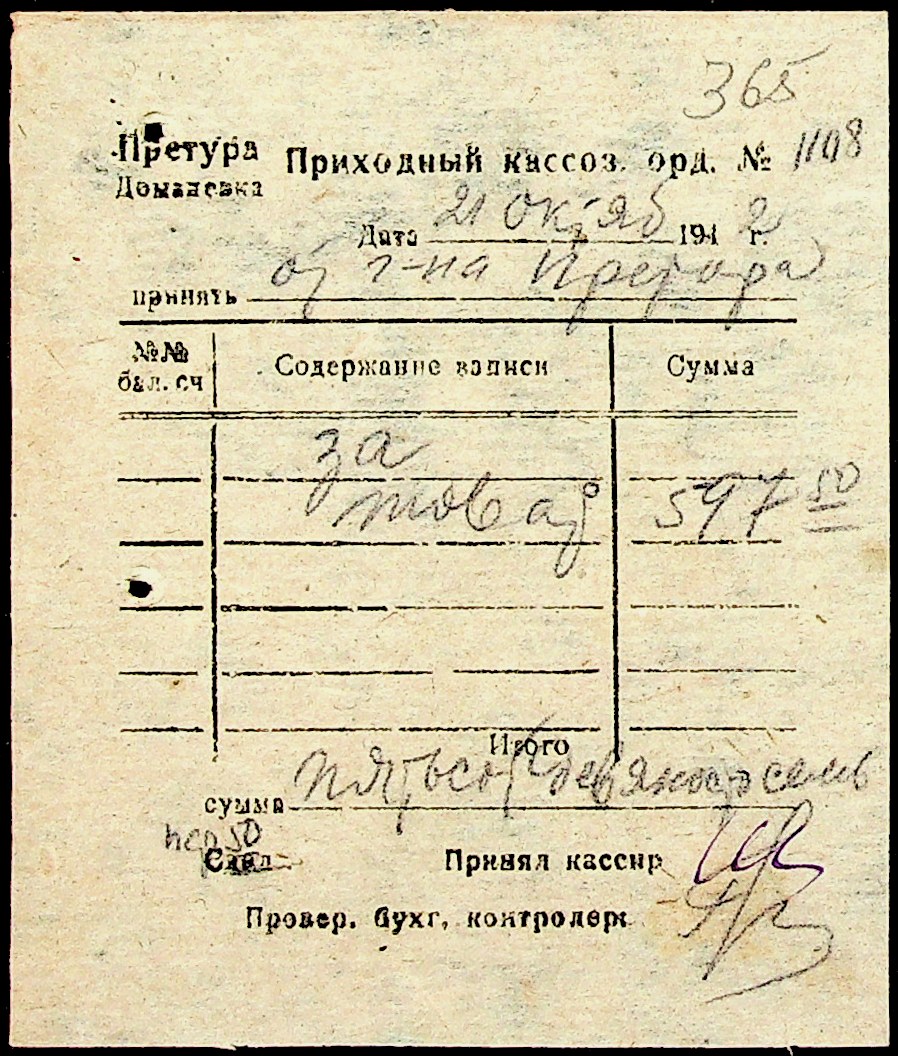 365
Претура Приходный кассов. орд. № 1108
Доманевка
Дата 21 октяб 1942 г.
принять от г-на Претора
№№ бал. сч Содержание записи Сумма
за
товар 597 50
Итого
сумма пятьсот девяносто семь
50
Сдал Принял кассир
Провер. бухг, контролер